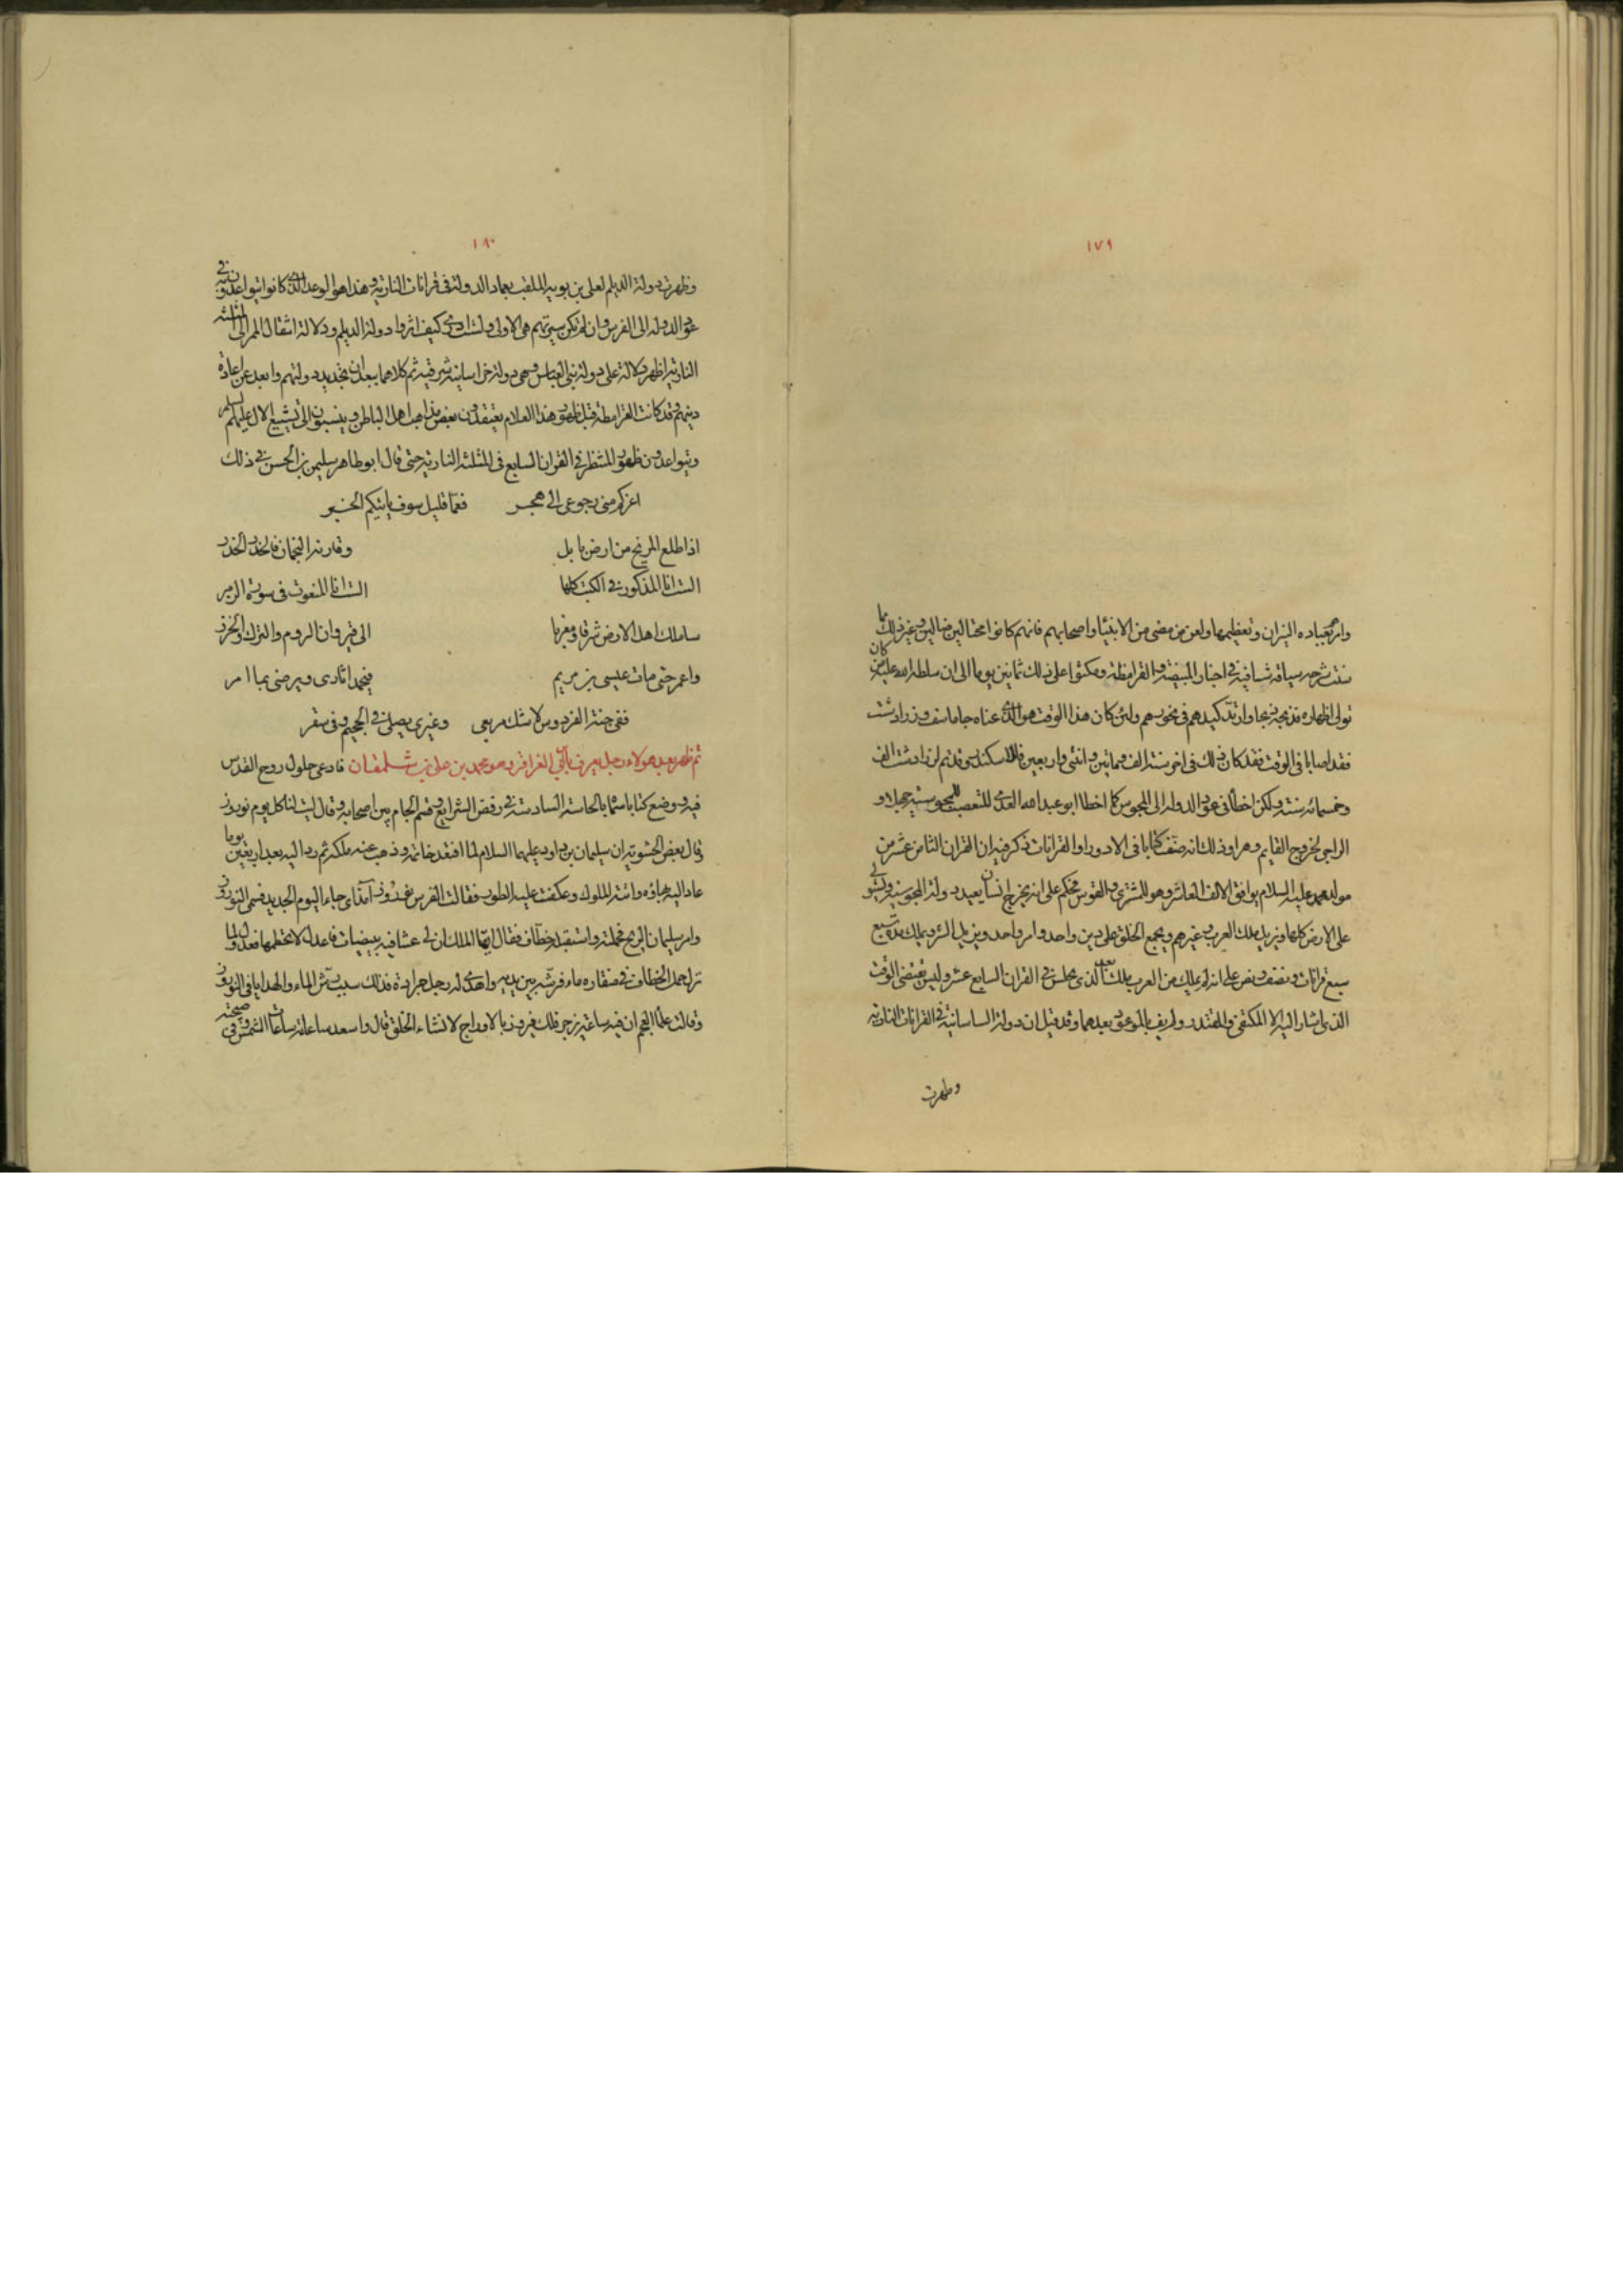 ١٧٩
وامر بعباده النيران وتعظيمها ولعن من مضى من الانبيا واصحابهم فانهم كانوا محتالين ضالين وغير ذلك مما
شرحه سياقة شافية في اخبار المبيضة والقرامطة ومكثوا على ذلك ثمانين يوما الى ان سلط الله عليه من كان
تولى اظهاره فذبحه ذبحا وارتد كيدهم في نحورهم ولئن كان هذا الوقت هو الذي عناه جاماسف وزرادشت
فقد اصابا في الوقت فقد كان ذلك في اخر سنة الف ومائتين واثنتي واربعين للاسكندر وقد تم لزرادشت الف
وخمسمائه سنة ولكن اخطا في عود الدوله الى المجوس كما اخطا ابو عبد الله العدي المتعصب للمجوسية جهلا و
الراجي لخروج القايم وذلك انه صنف كتابا في الادوار والقرانات ذكر فيه ان القران الثامن عشر من
مولد محمد عليه السلام يوافق الالف العاشر وهو للمشتري والقوس فحكم على انه يخرج انسان يعيد دولة المجوسية ويستولي
على الارض كلها ويزيل ملك العرب وغيرهم ويجمع الخلق على دين واحد وامر واحد ويزيل الشر ويملك مدة تسع
سبع قرانات ونصف ونص على انه لم يملك من العرب ملك بعد الذي يجلس في القران السابع عشر وليس يقتضى الوقت
الذي اشار اليه الا المكتفي والمقتدر ولم يف بالموعود بعدهما وقد قيل ان دولة الساسانية في القرانات النارية
وظهرت
١٨٠
وظهرت دولة الديلم لعلي بن بويه الملقب بعماد الدولة في قرانات النارية وهذا هو الوعد الذي كانوا يتواعدونه في
عود الدوله الى الفرس وان لم تكن سيرتهم هي الاولى ولست ادري كيف اثروا دولة الديلم ودلالة انتقال الممر الى المثلثة
النارية اظهر دلالة على دولة بني العباس وهي دولة خراسانية شرقية ثم كلاهما بعدا من تجديد دولتهم وابعد عن اعادة
دينهم وقد كانت القرامطة قبل ظهور هذا الغلام يعتقدون بعض مذاهب اهل الباطن وينسبون الى تشييع الال عليهم السلم
ويتواعدون ظهور المنتظر في القران السابع في المثلثة النارية حتى قال ابو طاهر سليمن بن الحسن في ذلك
اغركم مني رجوعي الى هجر فعما قليل سوف ياتيكم الخبر
اذا طلع المريخ من ارض بابل وقارنه النجمان فالحذر الحذر
الست انا المذكور في الكتب كلها الست انا المنعوت في سورة الزمر
ساملك اهل الارض شرقا ومغربا الى قيروان الروم والترك والخزر
واعمر حتى مات عيسى بن مريم فيحمد اثاري ويرضى بما امر
ففي جنة الفردوس لا شك مربعي وغيري يصلى في الجحيم وفي سقر
ثم ظهر بعد هولاء رجل يعرف بابن ابي الغراقر وهو محمد بن علي بن شلمغان فادعى حلول روح القدس
فيه ووضع كتابا سماه بالحاسة السادسة في رفض الشرايع وقسم الجام بين اصحابه وقال ليت لنا كل يوم نوروز
وقال بعض الحشوية ان سليمان بن داود عليهما السلام لما افتقد خاتمه وذهب عنه ملكه ثم رد اليه بعد اربعين يوما
عاد اليه بهاؤه واتته الملوك وعكفت عليه الطيور فقالت الفرس نوروز آمذ اي جاء اليوم الجديد فسمى النوروز
وامر سليمان الريح فحملته واستقبله خطاف فقال ايها الملك ان لي عشا فيه بيضات فاعدل لا تحطمها فعدل ولما
نزل حمل الخطاف في منقاره ماء فرشه بين يديه واهدى له رجل جرادة فذلك سبب رش الماء والهدايا في النوروز
وقالت علما العجم ان فيه ساعة يزجر فلك فيروز بالارواح لانشاء الخلق قال واسعد ساعاته ساعات الشمس وفي صبيحته